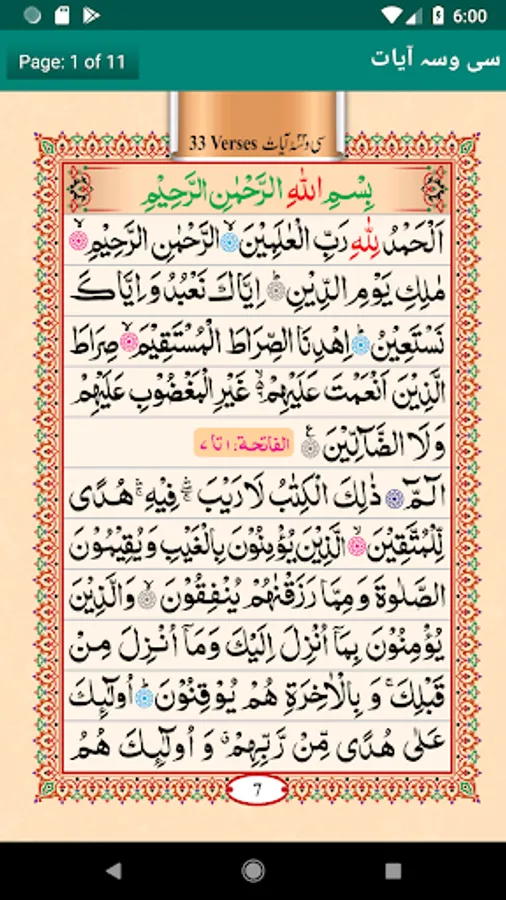 6:00
Page: 1 of 11
سی وسہ آیات
33 Verses سی و سہ آیات
بِسْمِ اللّٰهِ الرَّحْمٰنِ الرَّحِيْمِ
اَلْحَمْدُ لِلّٰهِ رَبِّ الْعٰلَمِيْنَ ۙ الرَّحْمٰنِ الرَّحِيْمِ ۙ
مٰلِكِ يَوْمِ الدِّيْنِ ؕ اِيَّاكَ نَعْبُدُ وَ اِيَّاكَ
نَسْتَعِيْنُ ؕ اِهْدِنَا الصِّرَاطَ الْمُسْتَقِيْمَ ۙ صِرَاطَ
الَّذِيْنَ اَنْعَمْتَ عَلَيْهِمْ ۙ غَيْرِ الْمَغْضُوْبِ عَلَيْهِمْ
وَلَا الضَّآلِّيْنَ ۧ الفاتحة: ۱ تا ۷
الٓمّٓ ۚ ذٰلِكَ الْكِتٰبُ لَا رَيْبَ ۛ فِيْهِ ۛ هُدًى
لِّلْمُتَّقِيْنَ ۙ الَّذِيْنَ يُؤْمِنُوْنَ بِالْغَيْبِ وَ يُقِيْمُوْنَ
الصَّلٰوةَ وَ مِمَّا رَزَقْنٰهُمْ يُنْفِقُوْنَ ۙ وَالَّذِيْنَ
يُؤْمِنُوْنَ بِمَاۤ اُنْزِلَ اِلَيْكَ وَمَاۤ اُنْزِلَ مِنْ
قَبْلِكَ ۚ وَ بِالْاٰخِرَةِ هُمْ يُوْقِنُوْنَ ؕ اُولٰٓئِكَ
عَلٰى هُدًى مِّنْ رَّبِّهِمْ ۗ وَ اُولٰٓئِكَ هُمُ
7